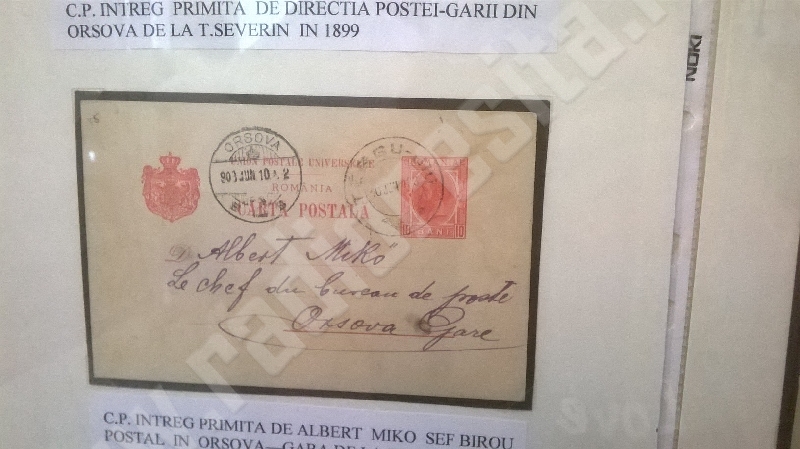 C.P. INTREG PRIMITA DE DIRECTIA POSTEI-GARII DIN
ORSOVA DE LA T.SEVERIN IN 1899
ORSOVA
UNION POSTALE UNIVERSELLE
ROMANIA
CARTA POSTALA
10 BANI 10
D. Albert Mikó
Le chef du bureau de poste
Orsova Gare
C.P. INTREG PRIMITA DE ALBERT MIKO SEF BIROU
POSTAL IN ORSOVA—GARA DE LA